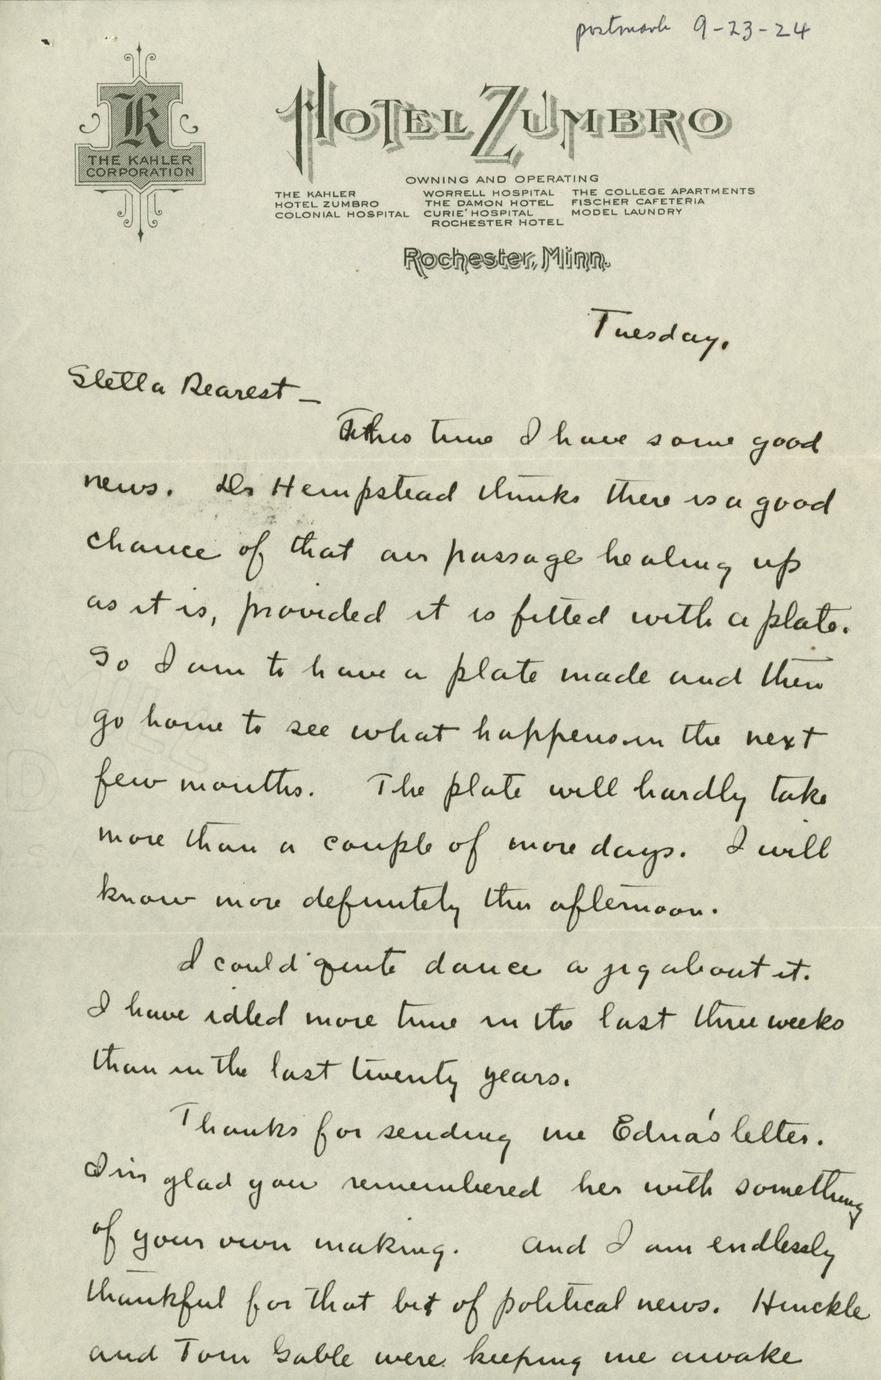 postmark 9-23-24
K
THE KAHLER
CORPORATION
HOTEL ZUMBRO
OWNING AND OPERATING
THE KAHLER WORRELL HOSPITAL THE COLLEGE APARTMENTS
HOTEL ZUMBRO THE DAMON HOTEL FISCHER CAFETERIA
COLONIAL HOSPITAL CURIE HOSPITAL MODEL LAUNDRY
ROCHESTER HOTEL
Rochester, Minn.
Tuesday.
Stella Dearest —
This time I have some good
news. Dr Hempstead thinks there is a good
chance of that air passage healing up
as it is, provided it is fitted with a plate.
So I am to have a plate made and then
go home to see what happens in the next
few months. The plate will hardly take
more than a couple of more days. I will
know more definitely this afternoon.
I could quite dance a jig about it.
I have idled more time in the last three weeks
than in the last twenty years.
Thanks for sending me Edna's letter.
I'm glad you remembered her with something
of your own making. And I am endlessly
thankful for that bit of political news. Hinckle
and Tom Gable were keeping me awake